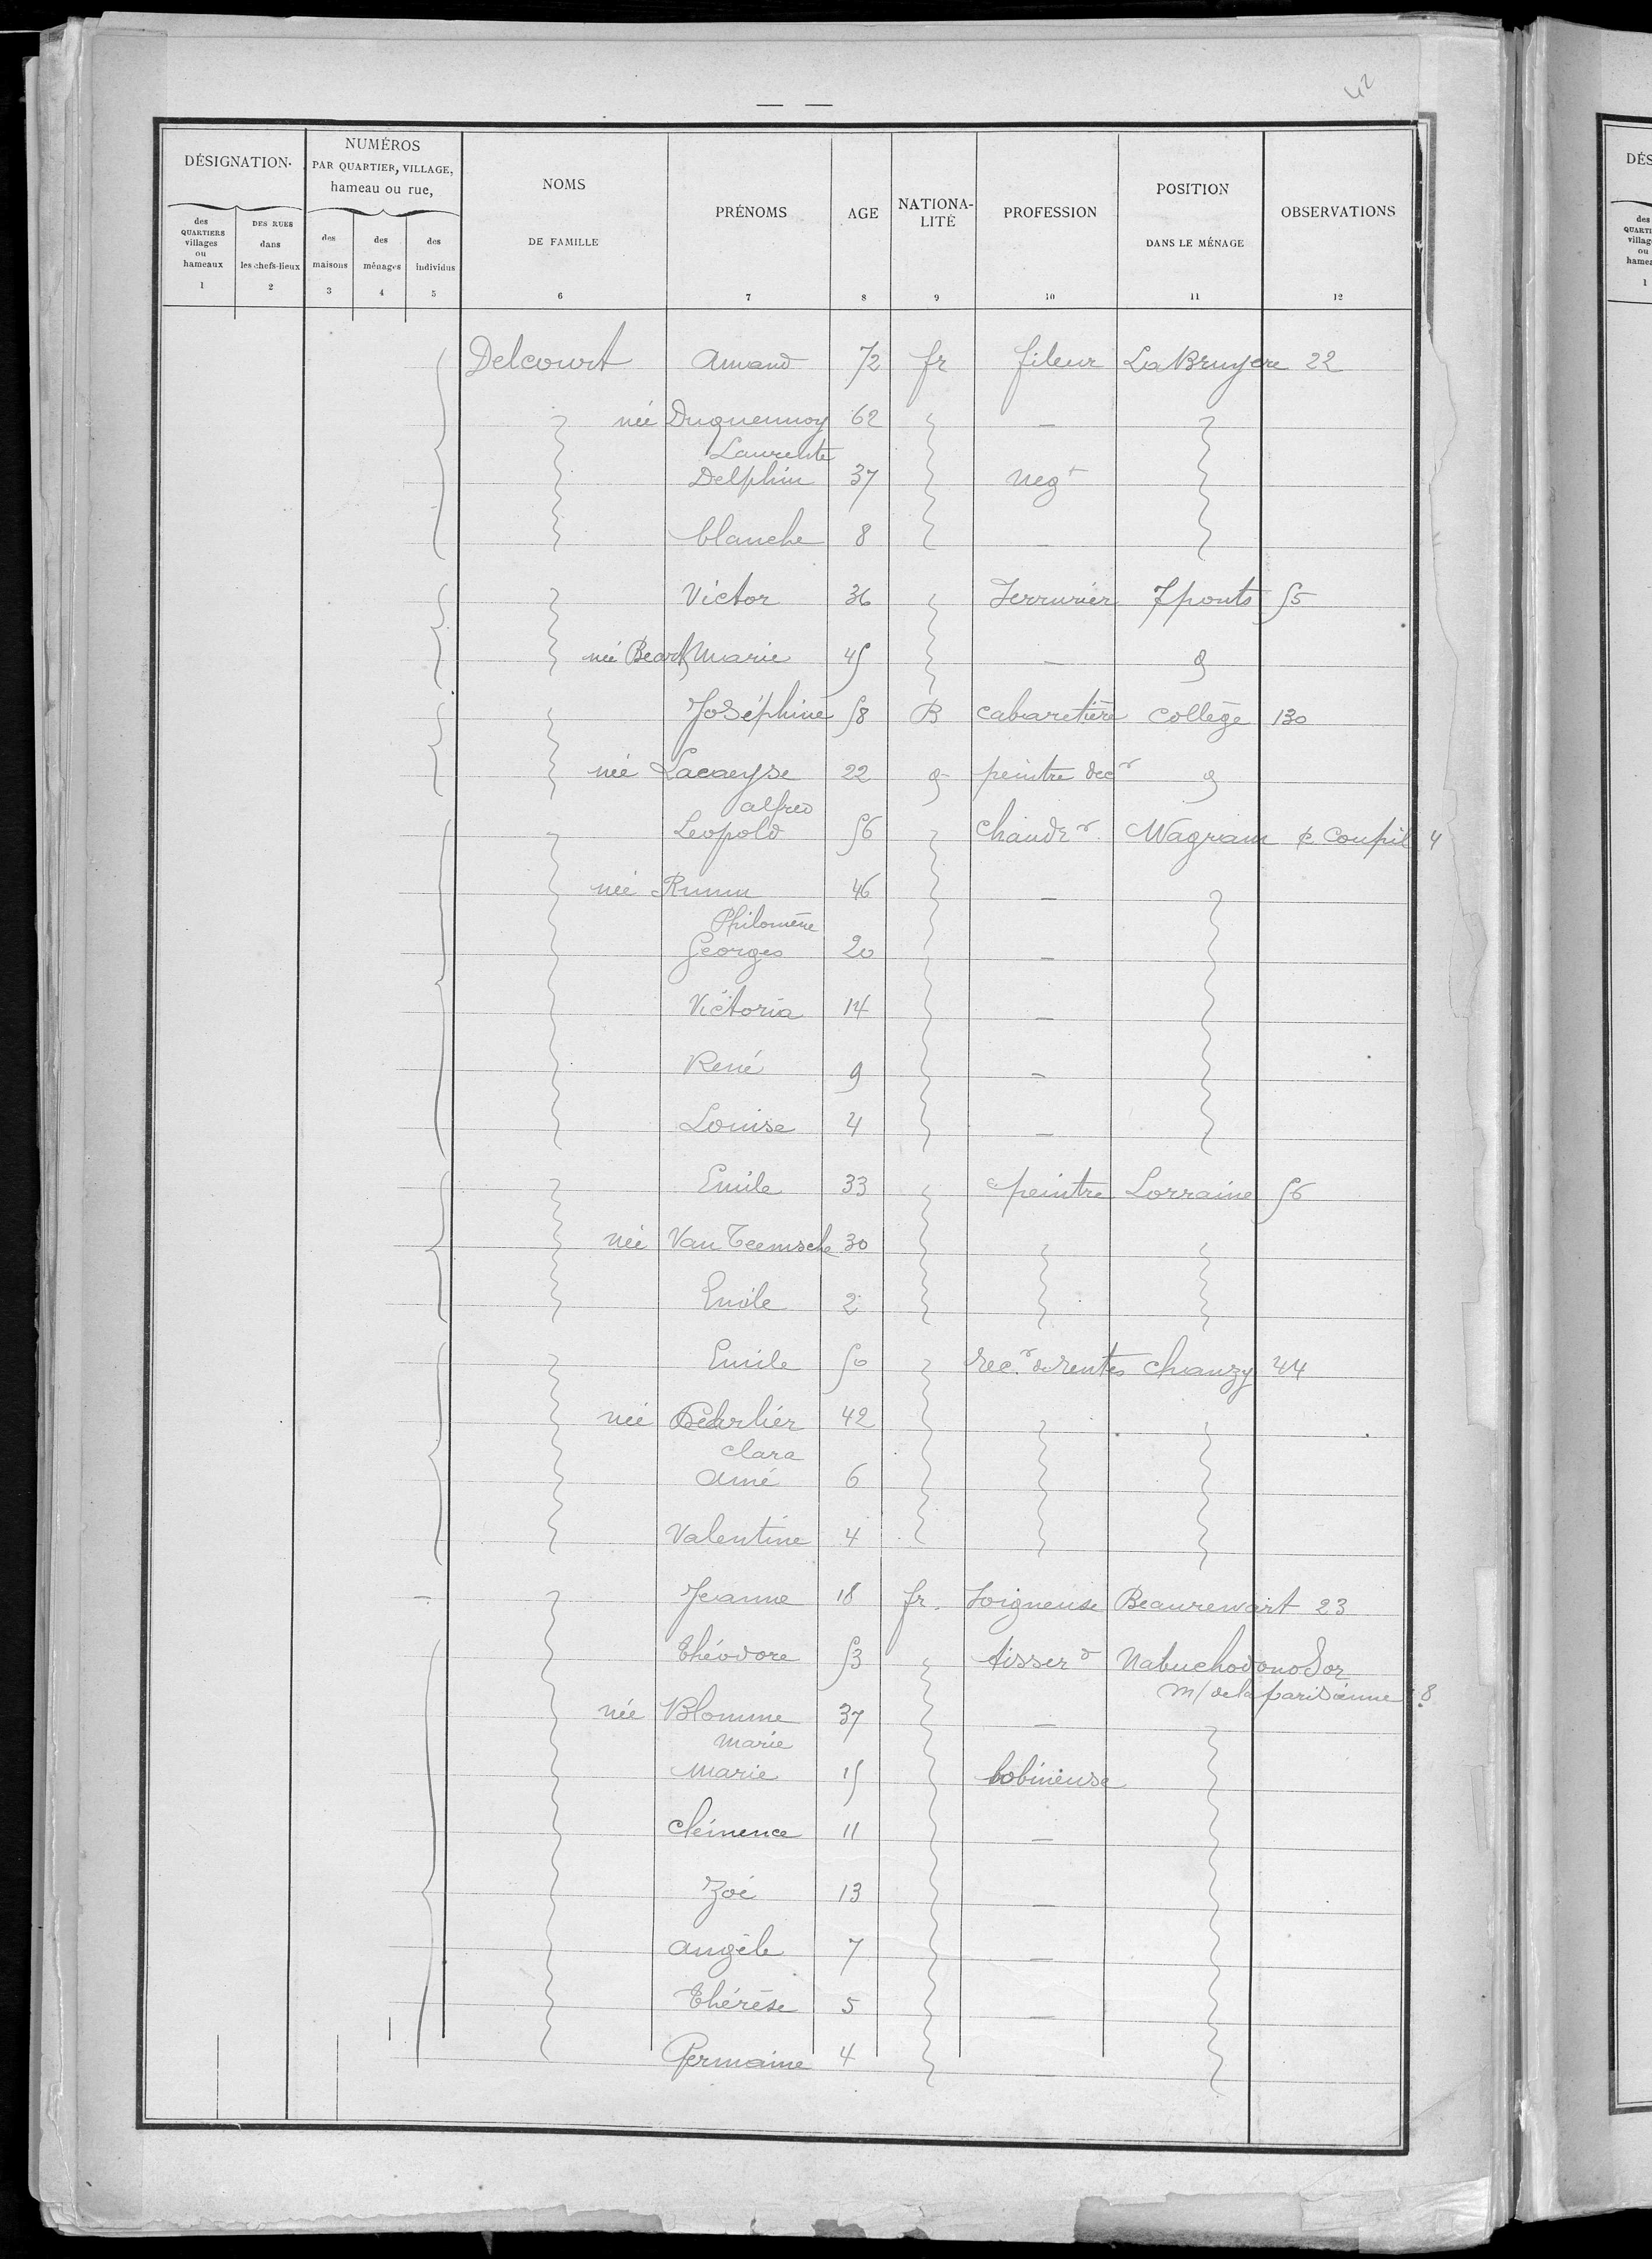 42
— —
DÉSIGNATION
NUMÉROS
PAR QUARTIER, VILLAGE,
hameau ou rue,
NOMS
DE FAMILLE
PRÉNOMS
AGE
NATIONA-
LITÉ
PROFESSION
POSITION
DANS LE MÉNAGE
OBSERVATIONS
des
QUARTIERS
villages
ou
hameaux
DES RUES
dans
les chefs-lieux
des
maisons
des
ménages
des
individus
1 2 3 4 5 6 7 8 9 10 11 12
Delcourt Amand 72 fr fileur La Bruyere 22
née Duquennoy 62 —
Laurente
Delphin 37 negt
blanche 8 —
Victor 36 Serrurier 7 ponts 55
née Marie 45 —
Joséphine 58 B cabaretière Collège 130
née Lacaeyse 22 peintre decr
alfred
Leopold 56 chaudr Wagram c. Coupil 4
née 46 —
Philomène
Georges 20 —
Victoria 14 —
René 9 —
Louise 4 —
Emile 33 peintre Lorraine 56
née Van Teemsche 30
Emile 2
Emile 50 recr de rentes Chanzy 44
née 42
clara
Aimé 6
Valentine 4
Jeanne 18 fr. Soigneuse Beaurewart 23
Théodore 53 tisserd Nabuchodonosor
m/ de la parisienne 8
née Blomme 37 —
Marie
Marie 15 bobineuse
clémence 11 —
Zoé 13 —
angèle 7 —
Thérèse 5 —
Germaine 4 —
DÉS
des
QUARTI
villag
ou
hamea
1